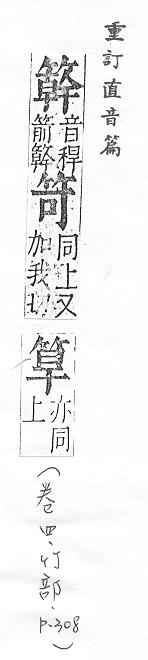 重訂直音篇
簳音稈箭簳笴同上又加我切
䇞亦同上
(卷四.竹部.p.308)